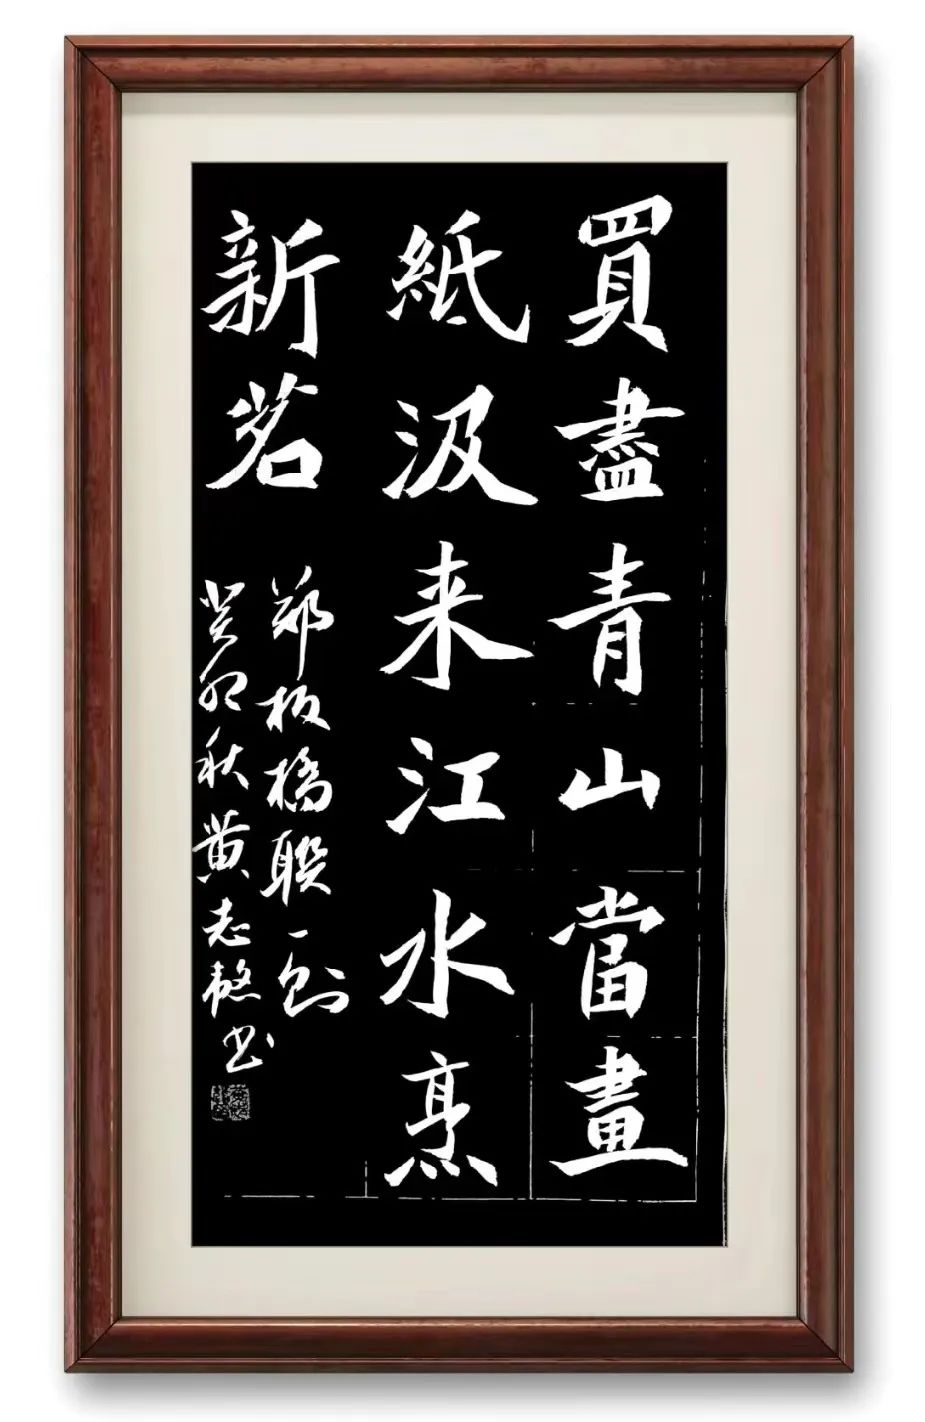 買盡青山當畫
紙汲来江水烹
新茗
郑板橋聯一则
癸卯秋黄志
书